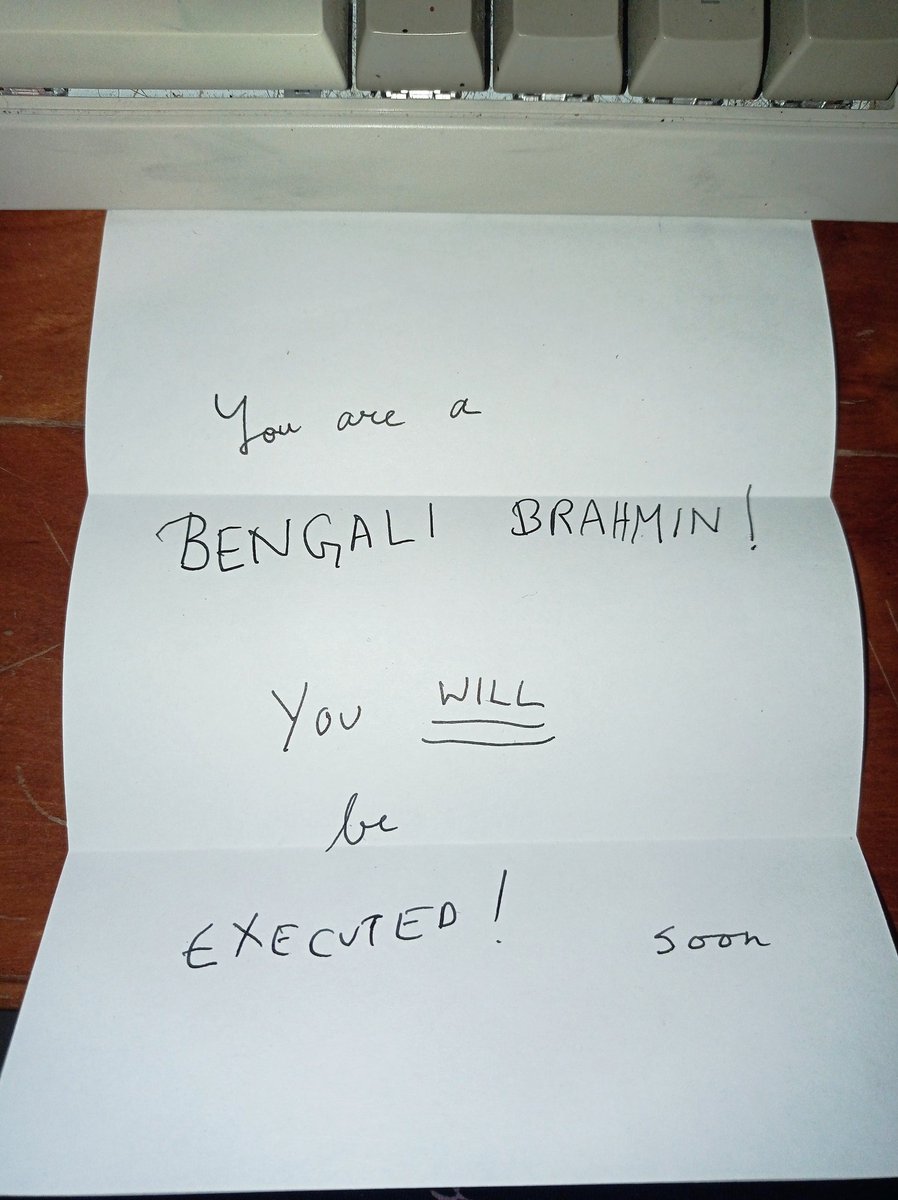 You are a
BENGALI BRAHMIN!
You WILL
be
EXECUTED! soon